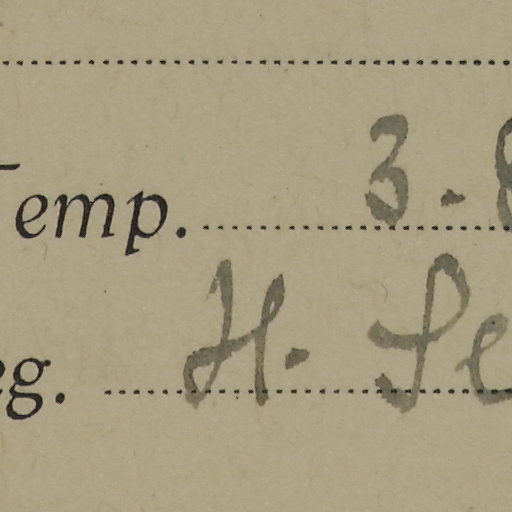 Temp. 3.
eg. H. Se